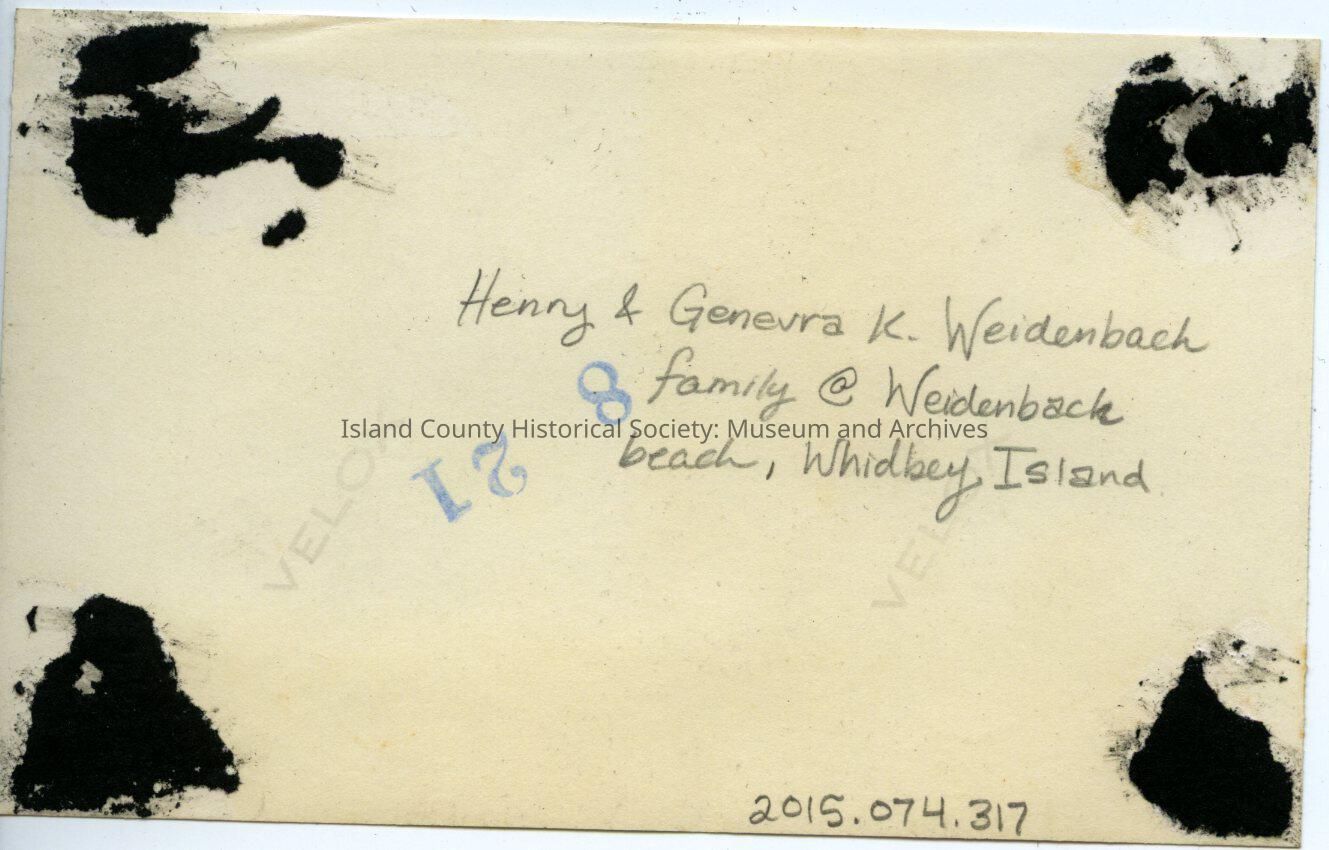 Henry & Genevra K. Weidenbach
family @ Weidenback
beach, Whidbey Island
8
21
Island County Historical Society: Museum and Archives
VELOX
VELOX
2015.074.317